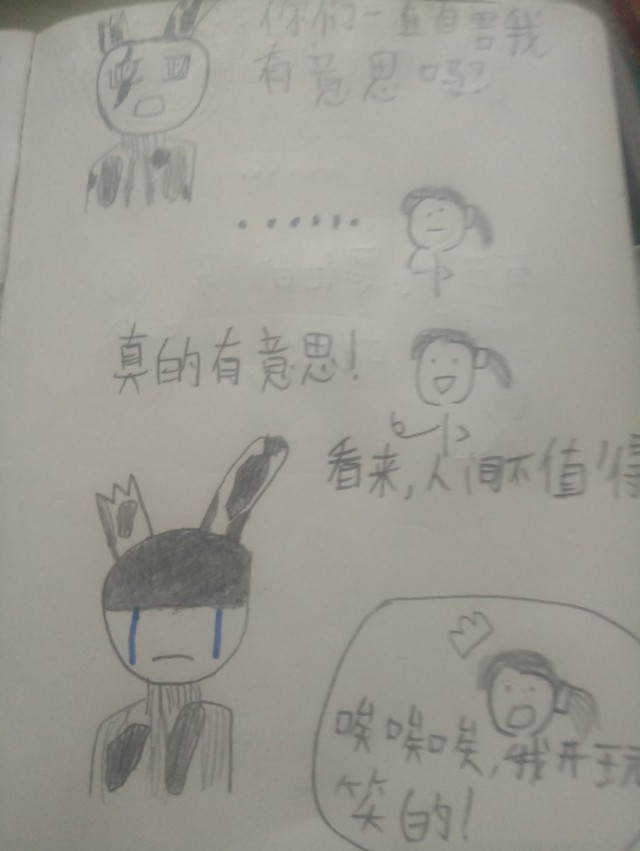 你们一直自害我
有意思吗?
······
真的有意思!
看来,人间不值得
唉唉唉,我开玩
笑的!